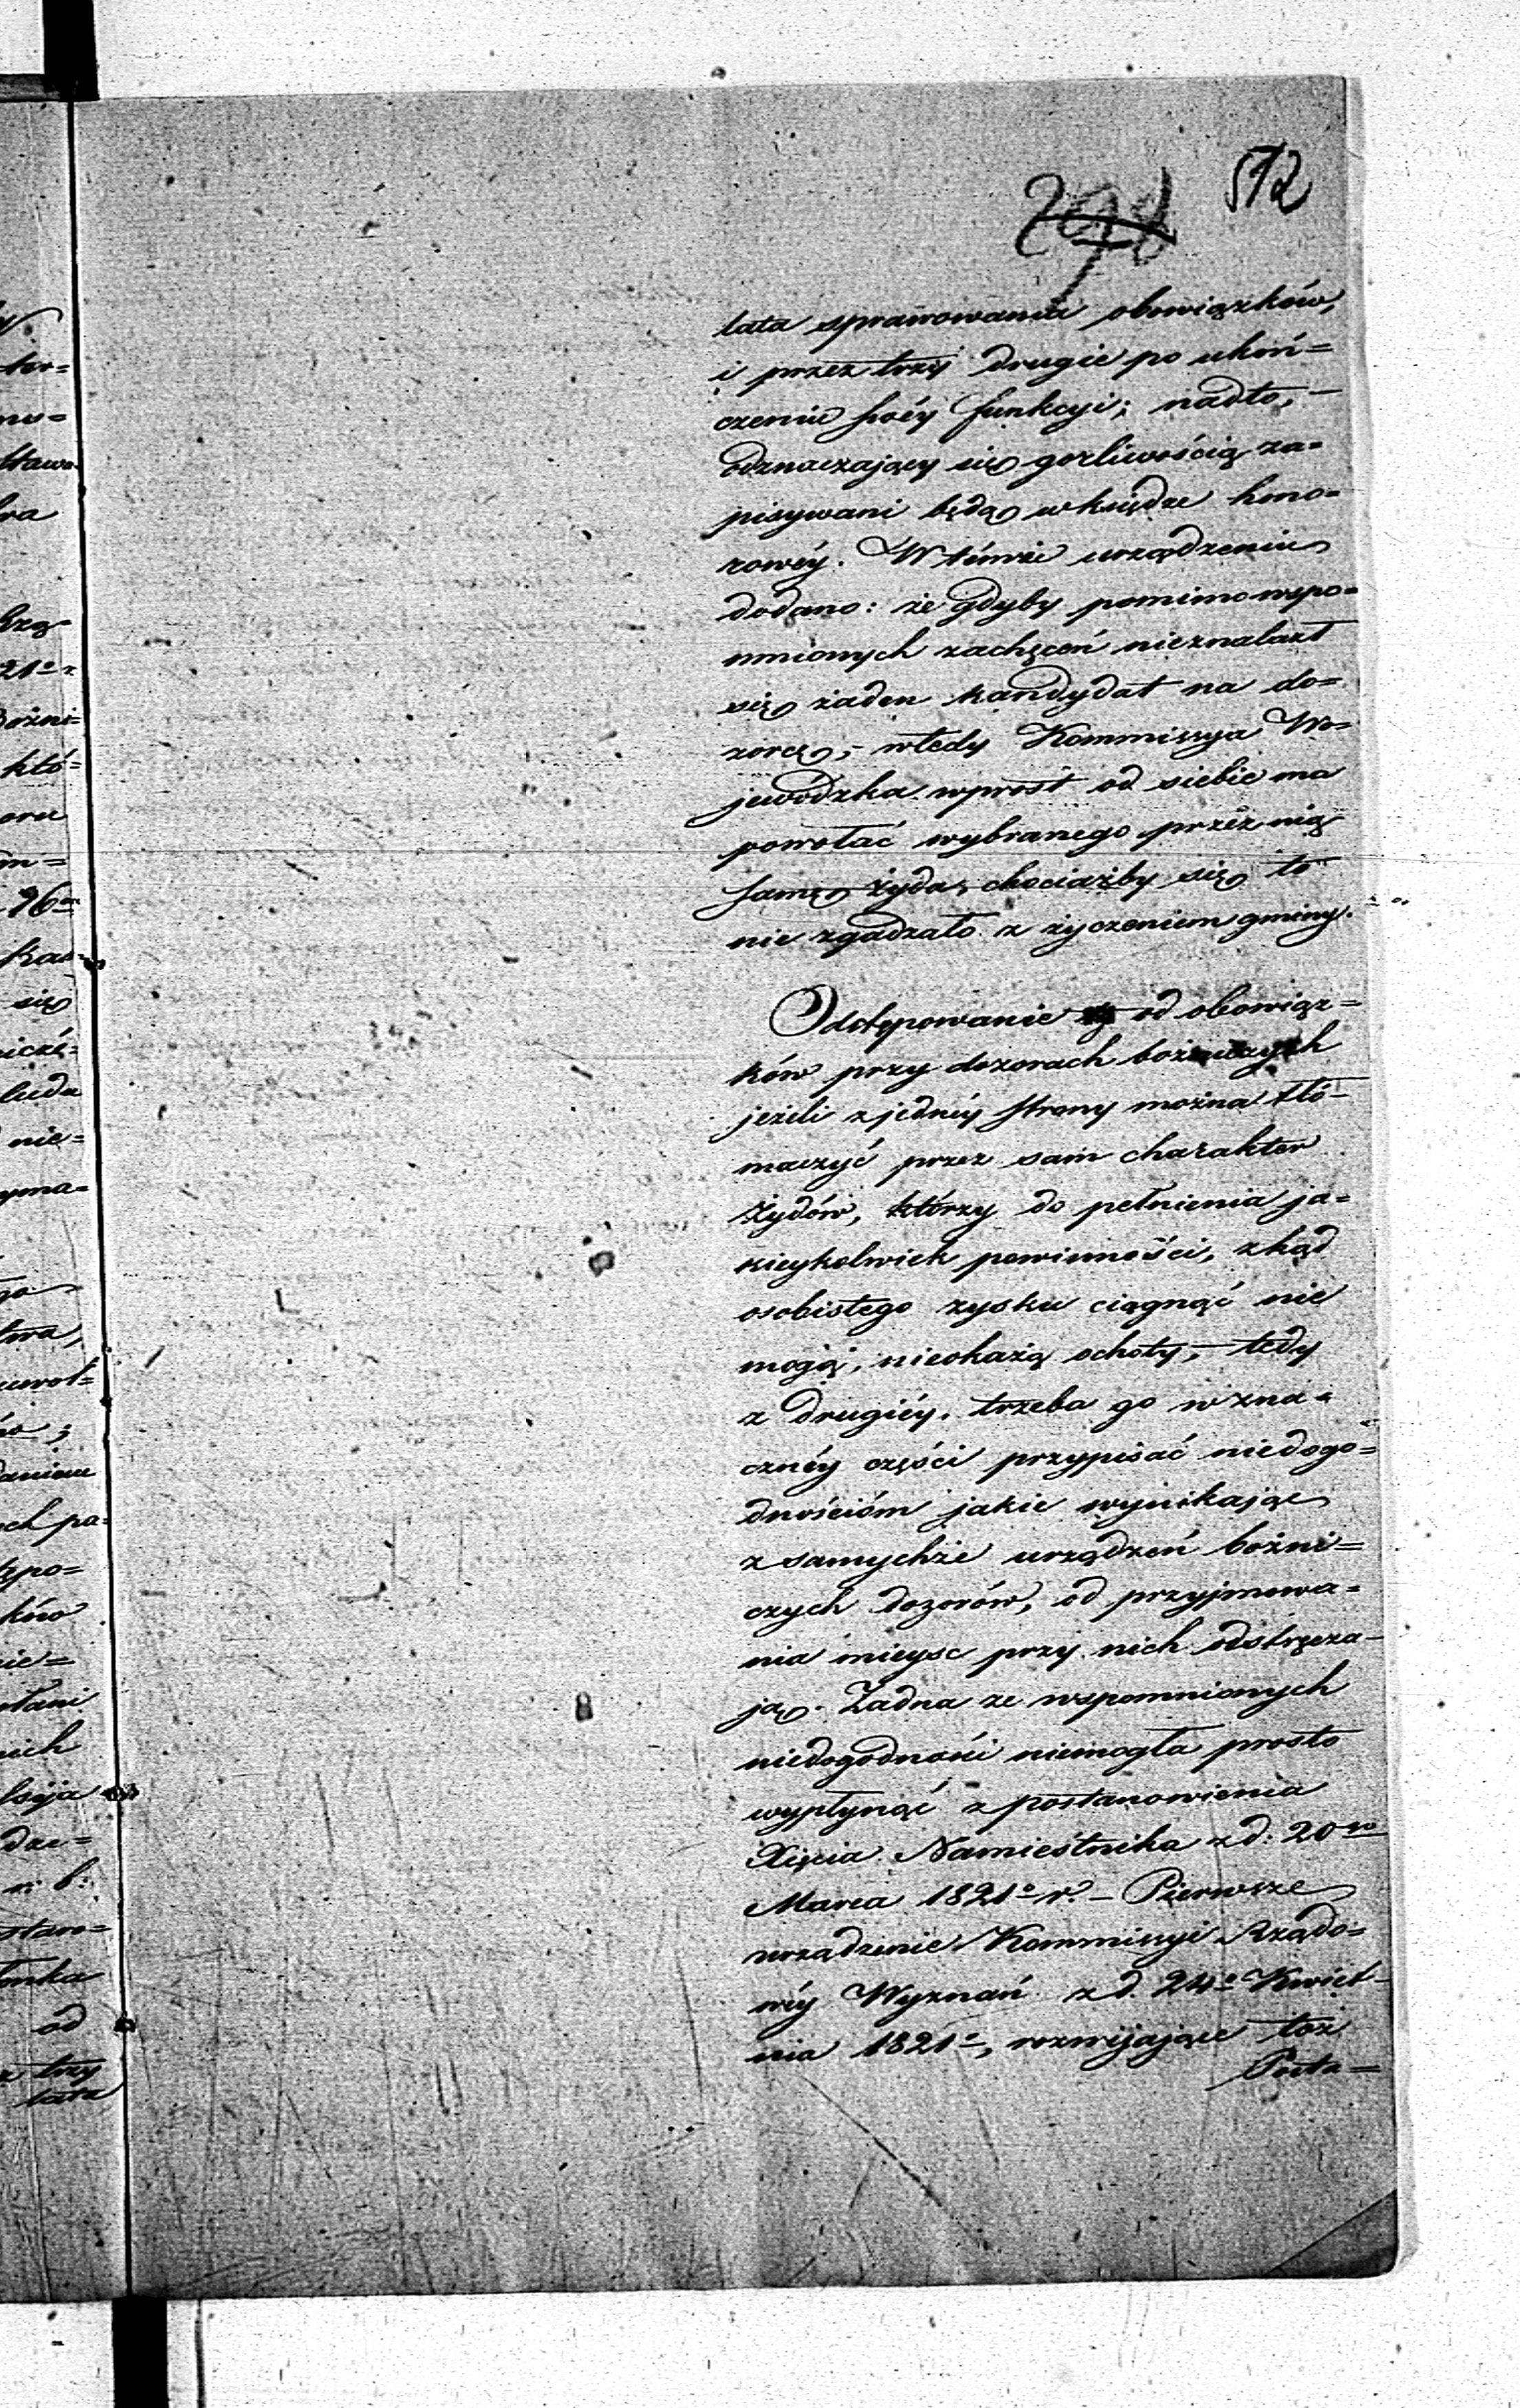 512
298
lata sprawowania obowiązków,
i przez trzy drugie po ukoń=
czeniu swéy funkcyi; nadto, —
odznaczający się gorliwością za=
pisywani będą w księdze hono=
rowéy. W témże urządzeniu
dodano: że gdyby pomimo wspo=
mnionych zachęceń nieznalazł
się żaden kandydat na do=
zorcę, — wtedy Kommissya Wo=
jewódzka wprost od siebie ma
powołać wybranego przez nią
samę żyda, chociażby się to
nie zgadzało z życzeniem gminy.
Odstępowanie od obowiąz=
ków przy dozorach bożniczych
jeżeli z jednéy strony można tłó=
maczyć przez sam charakter
Żydów, którzy do pełnienia ja=
kieykolwiek powinności, zkąd
osobistego zysku ciągnąć nie
mogą, nieokażą ochoty, — tedy
z drugiéy, trzeba go w zna=
cznéy części przypisać niedogo=
dnościóm jakie wynikając
z samychże urządzeń bożni=
czych dozorów, od przyjmowa=
nia mieysc przy nich odstręcza=
ją. Żadna ze wspomnionych
niedogodności niemogła prosto
wypłynąć z postanowienia
Xięcia Namiestnika z d. 20go
Marca 1821o r. — Pierwsze
urządzenie Kommissyi Rządo=
wéy Wyznań z d. 24o Kwiet=
nia 1821o, rozwijające toż
Posta=